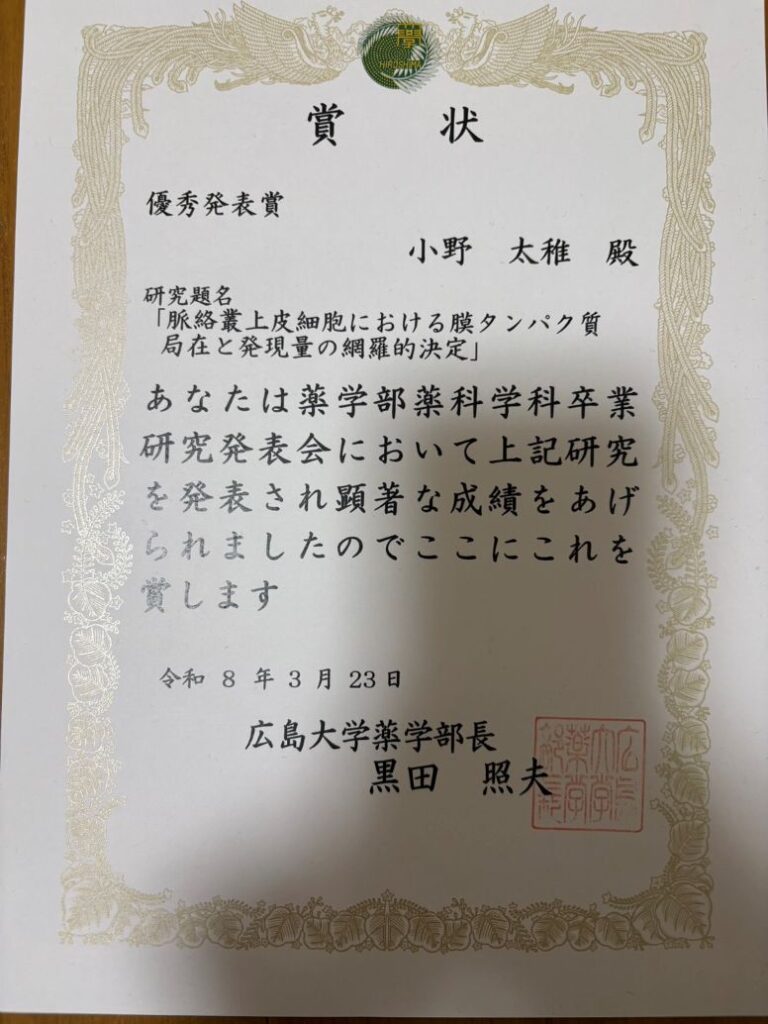 學
HIROSHIMA
賞 状
優秀発表賞
小野 太稚 殿
研究題名
「脈絡叢上皮細胞における膜タンパク質
局在と発現量の網羅的決定」
あなたは薬学部薬科学科卒業
研究発表会において上記研究
を発表され顕著な成績をあげ
られましたのでここにこれを
賞します
令和 8 年 3 月 23 日
広島大学薬学部長
黒田 照夫